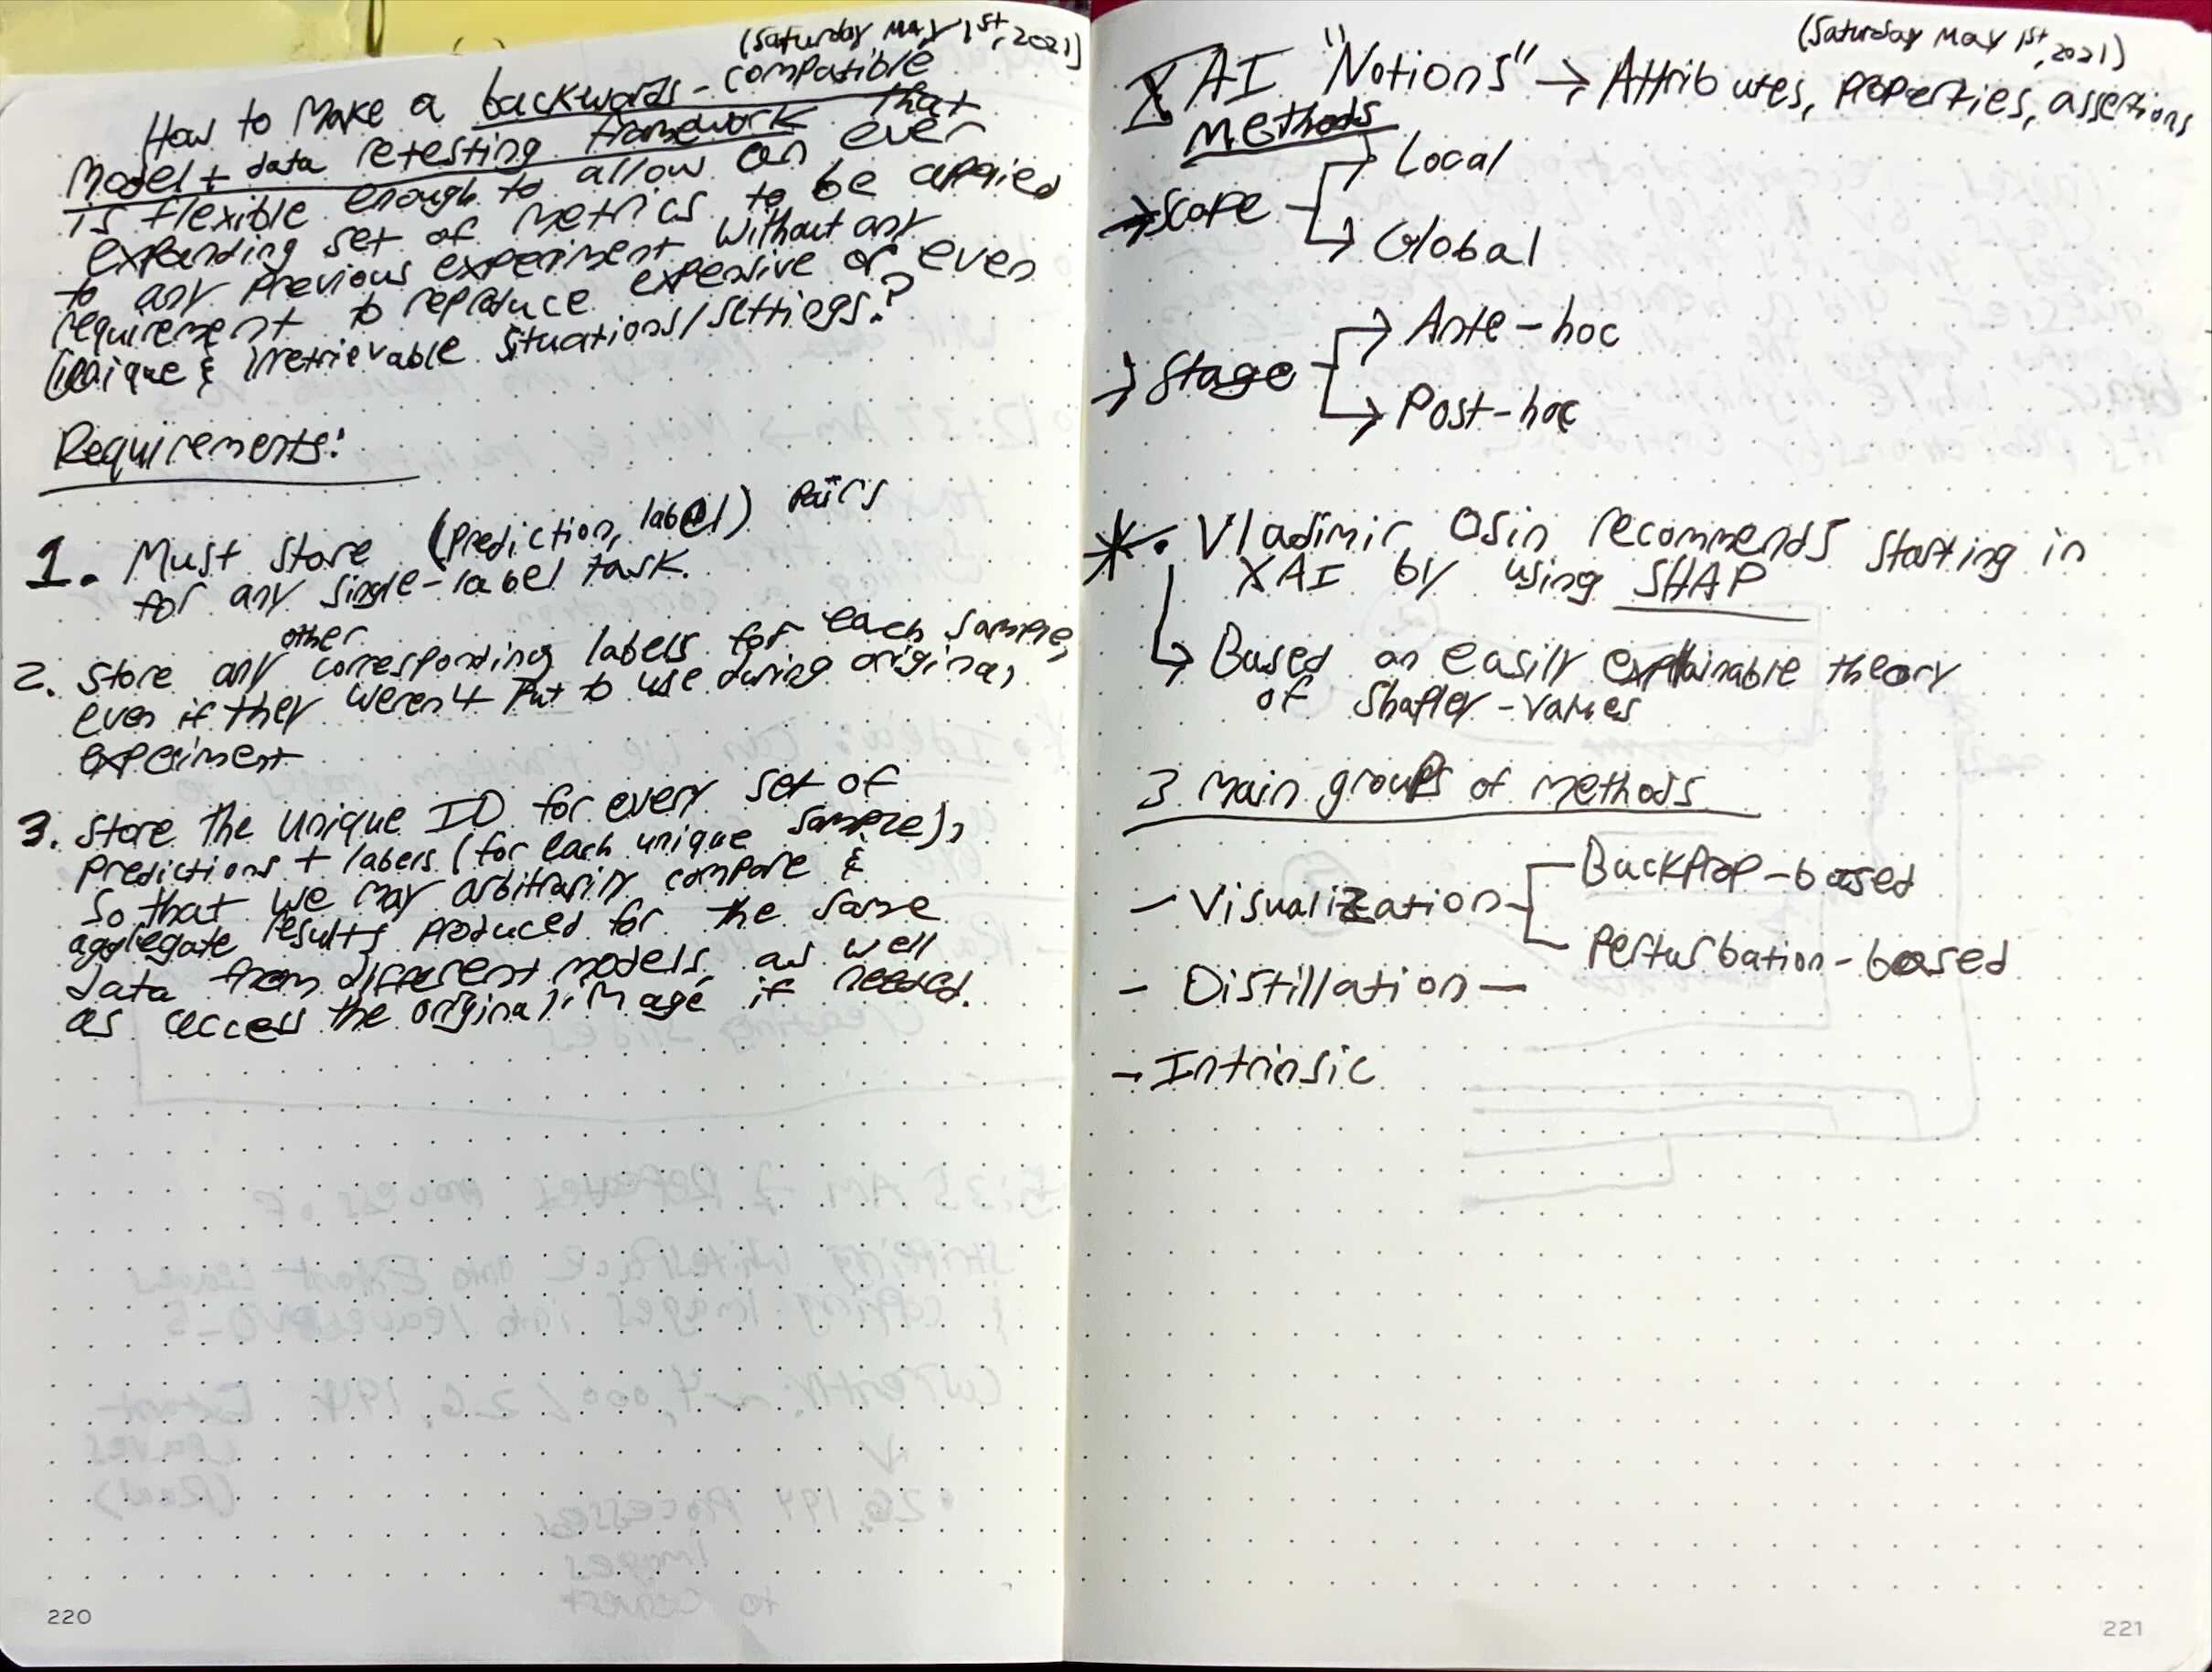 (Saturday May 1st, 2021)
How to Make a backwards-compatible
Model + data retesting framework that
is flexible enough to allow an ever
expanding set of metrics to be applied
to any previous experiment without any
requirement to reproduce expensive or even
unique & irretrievable situations/settings?
Requirements:
1. Must store (prediction, label) pairs
for any single-label task.
2. Store any other corresponding labels for each sample,
even if they weren't put to use during original
experiment
3. Store the unique ID for every set of
predictions + labels (for each unique sample),
so that we may arbitrarily compare &
aggregate results produced for the same
data from different models, as well
as access the original image if needed.
220
(Saturday May 1st, 2021)
XAI "Notions" → Attributes, properties, assertions
Methods
→ Scope
Local
Global
→ Stage
Ante-hoc
Post-hoc
* . Vladimir Osin recommends starting in
XAI by using SHAP
↳ Based on easily explainable theory
of Shapley-values
3 main groups of methods
- Visualization
Backprop-based
Perturbation-based
- Distillation -
- Intrinsic
221